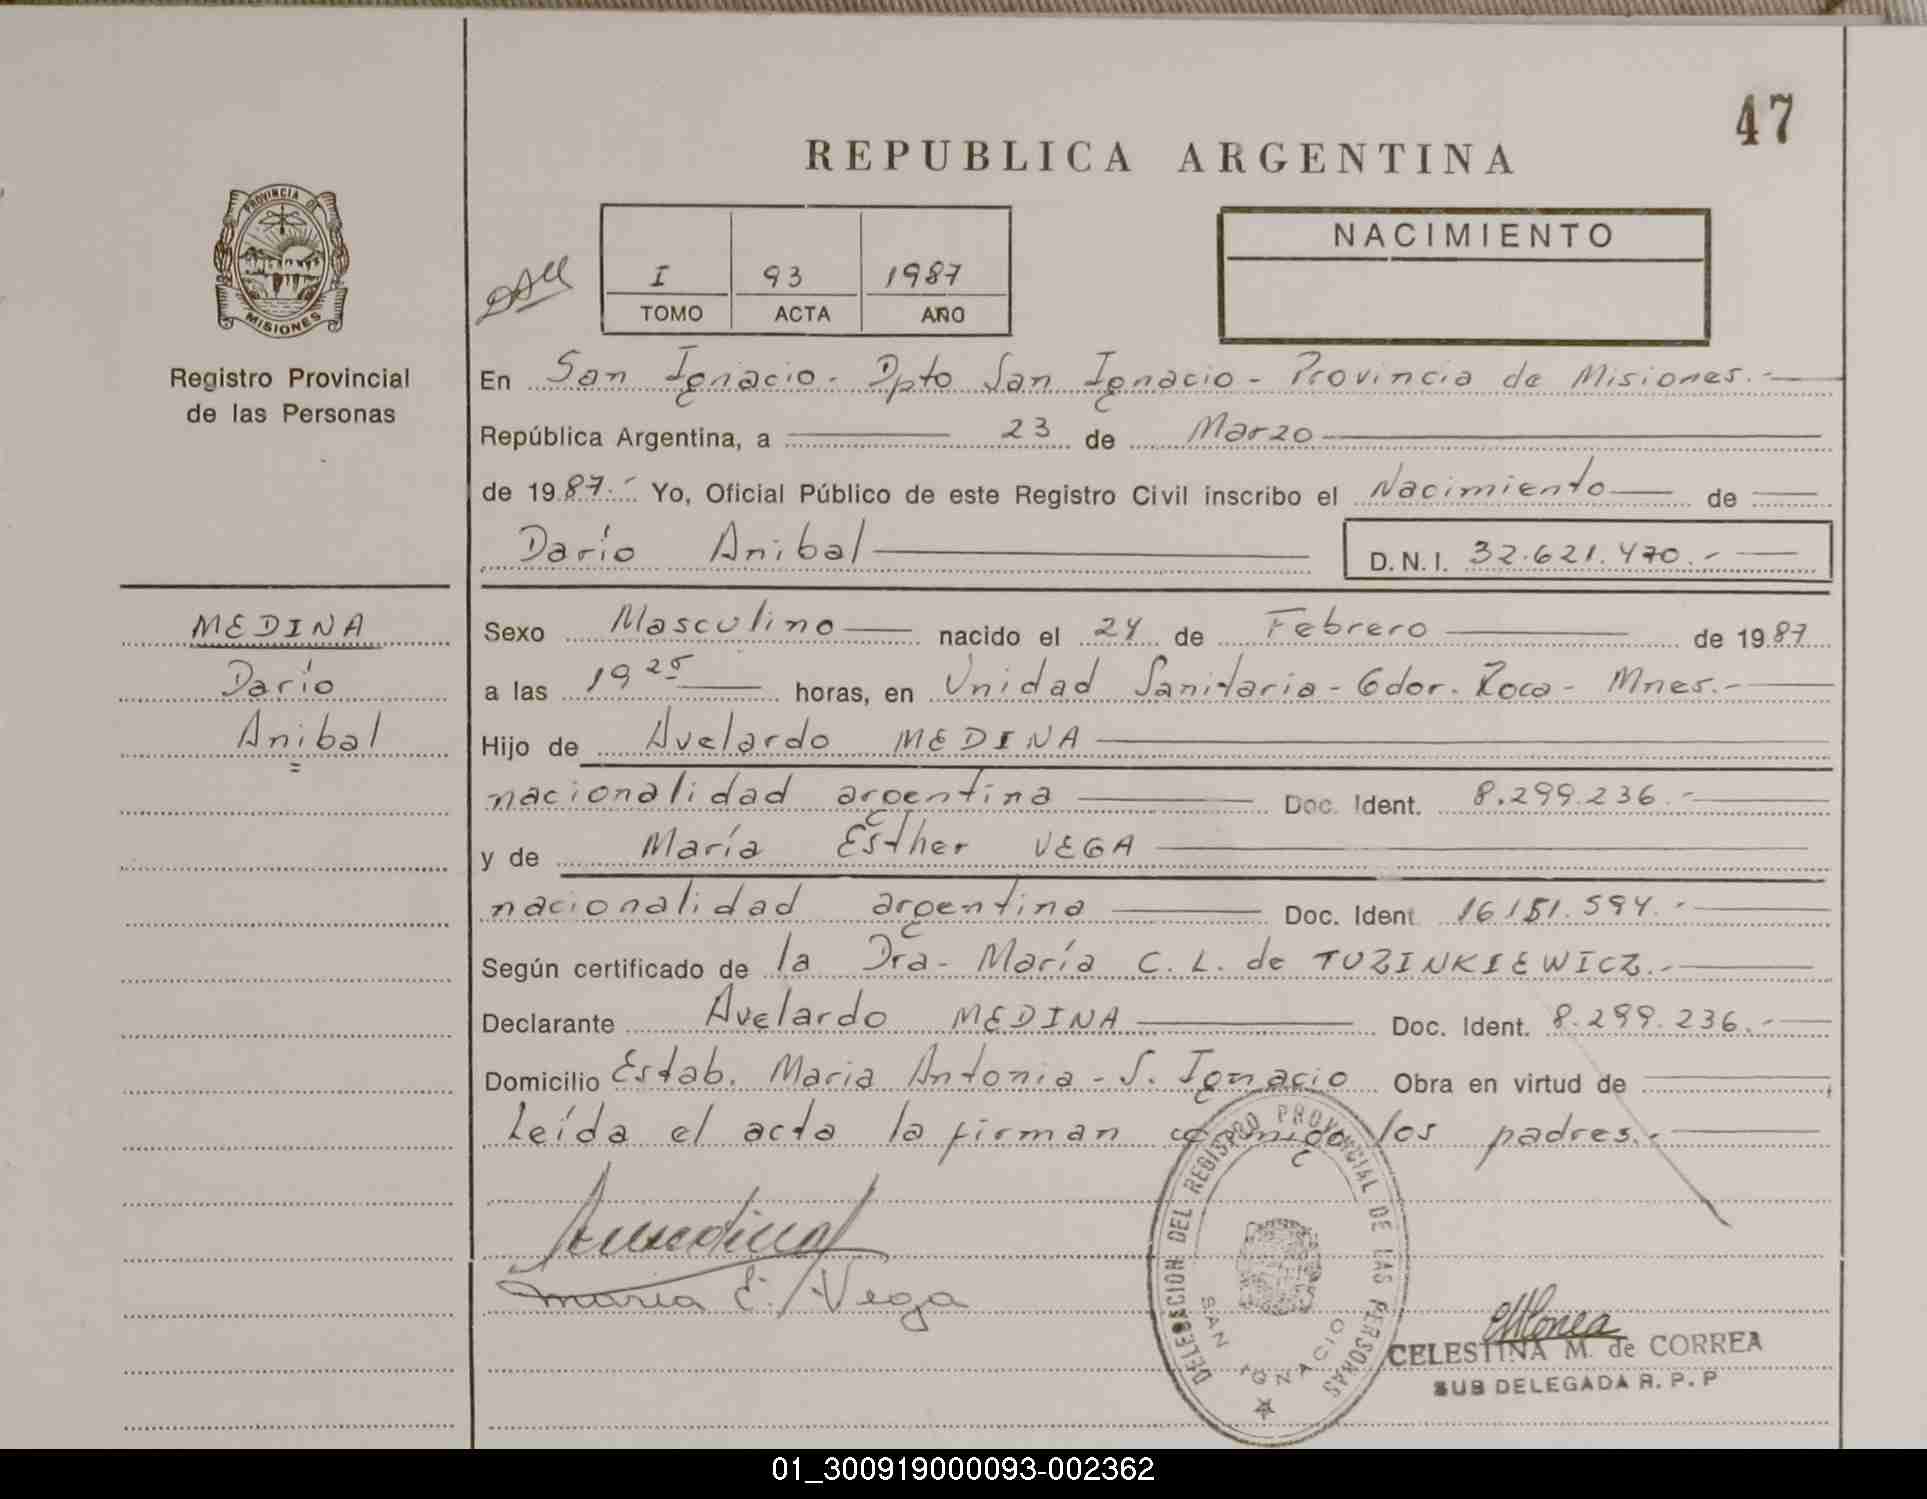 47
REPUBLICA ARGENTINA
PROVINCIA DE
MISIONES
Registro Provincial
de las Personas
I 93 1987
TOMO ACTA AÑO
NACIMIENTO
En San Ignacio - Dpto San Ignacio - Provincia de Misiones.-
República Argentina, a 23 de Marzo
de 1987.- Yo, Oficial Público de este Registro Civil inscribo el Nacimiento de
Darío Anibal D.N.I. 32.621.470.-
MEDINA
Darío
Anibal
Sexo Masculino nacido el 24 de Febrero de 1987
a las 19 25 horas, en Unidad Sanitaria - Gdor. Roca - Mnes.-
Hijo de Avelardo MEDINA
nacionalidad argentina Doc. Ident. 8.299.236.-
y de María Esther VEGA
nacionalidad argentina Doc. Ident 16.151.594.-
Según certificado de la Dra. María C. L. de TUZINKIEWICZ.-
Declarante Avelardo MEDINA Doc. Ident. 8.299.236.-
Domicilio Estab. Maria Antonia - S. Ignacio Obra en virtud de
Leída el acta la firman conmigo los padres.-
maria E. Vega
DELEGACION DEL REGISTRO PROVINCIAL DE LAS PERSONAS
SAN IGNACIO
CELESTINA M. de CORREA
SUB DELEGADA R. P. P
01_300919000093-002362